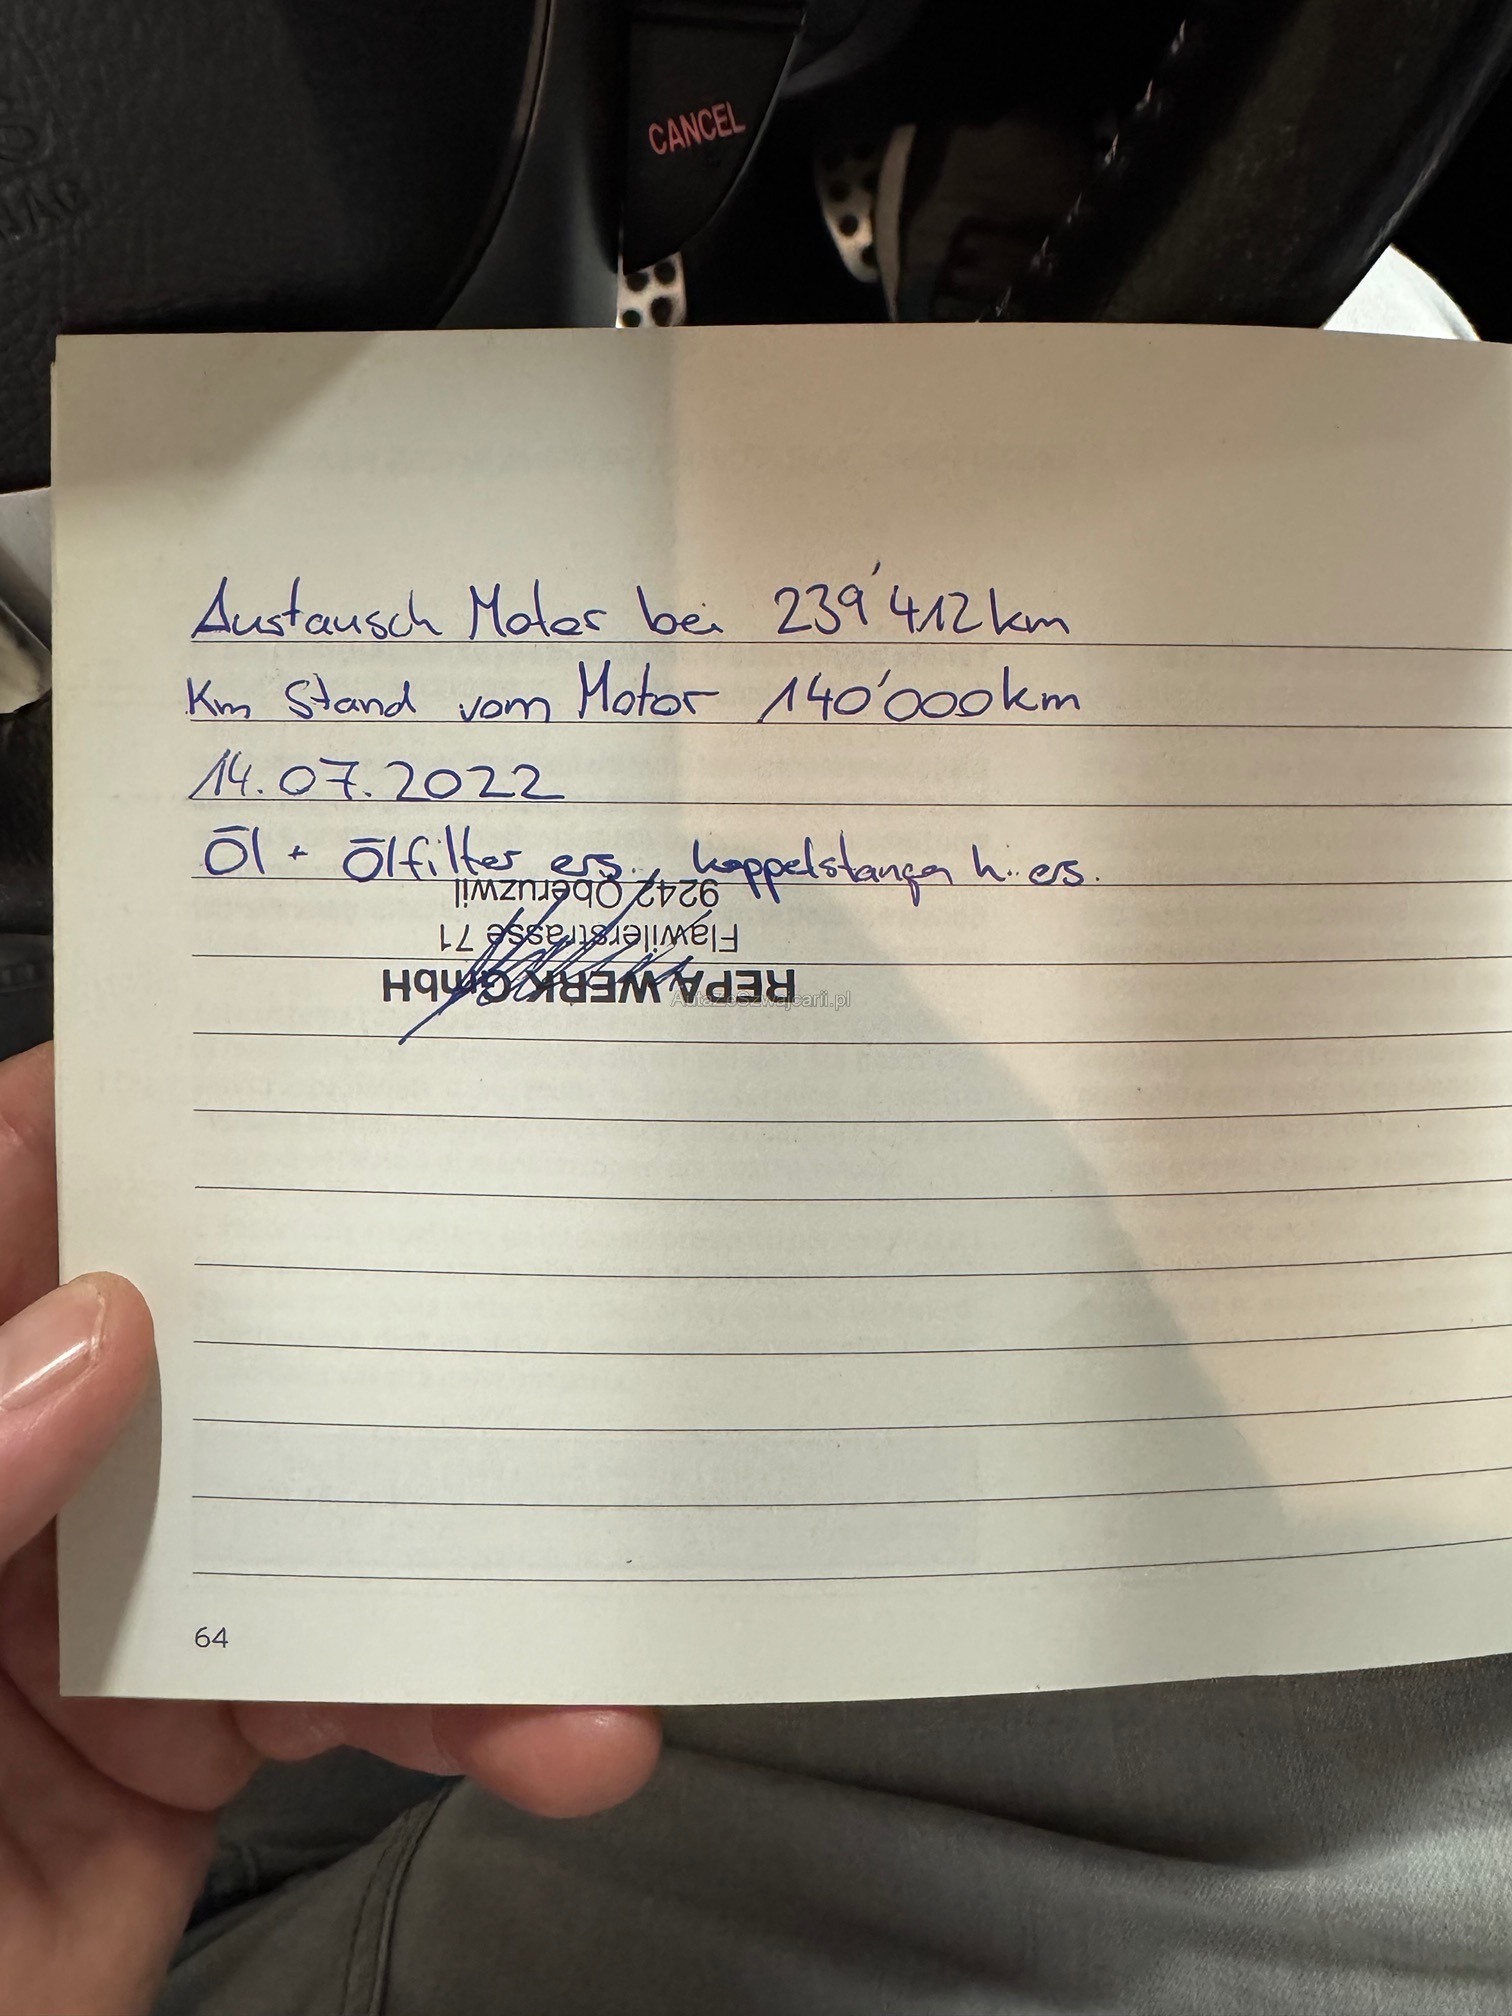 CANCEL
Austausch Motor bei 239'412km
Km Stand vom Motor 140'000km
14.07.2022
Öl + Ölfilter ers., koppelstangen h. ers.
REPA WERK GmbH
Flawilerstrasse 71
9242 Oberuzwil
AutaZeSzwajcarii.pl
64